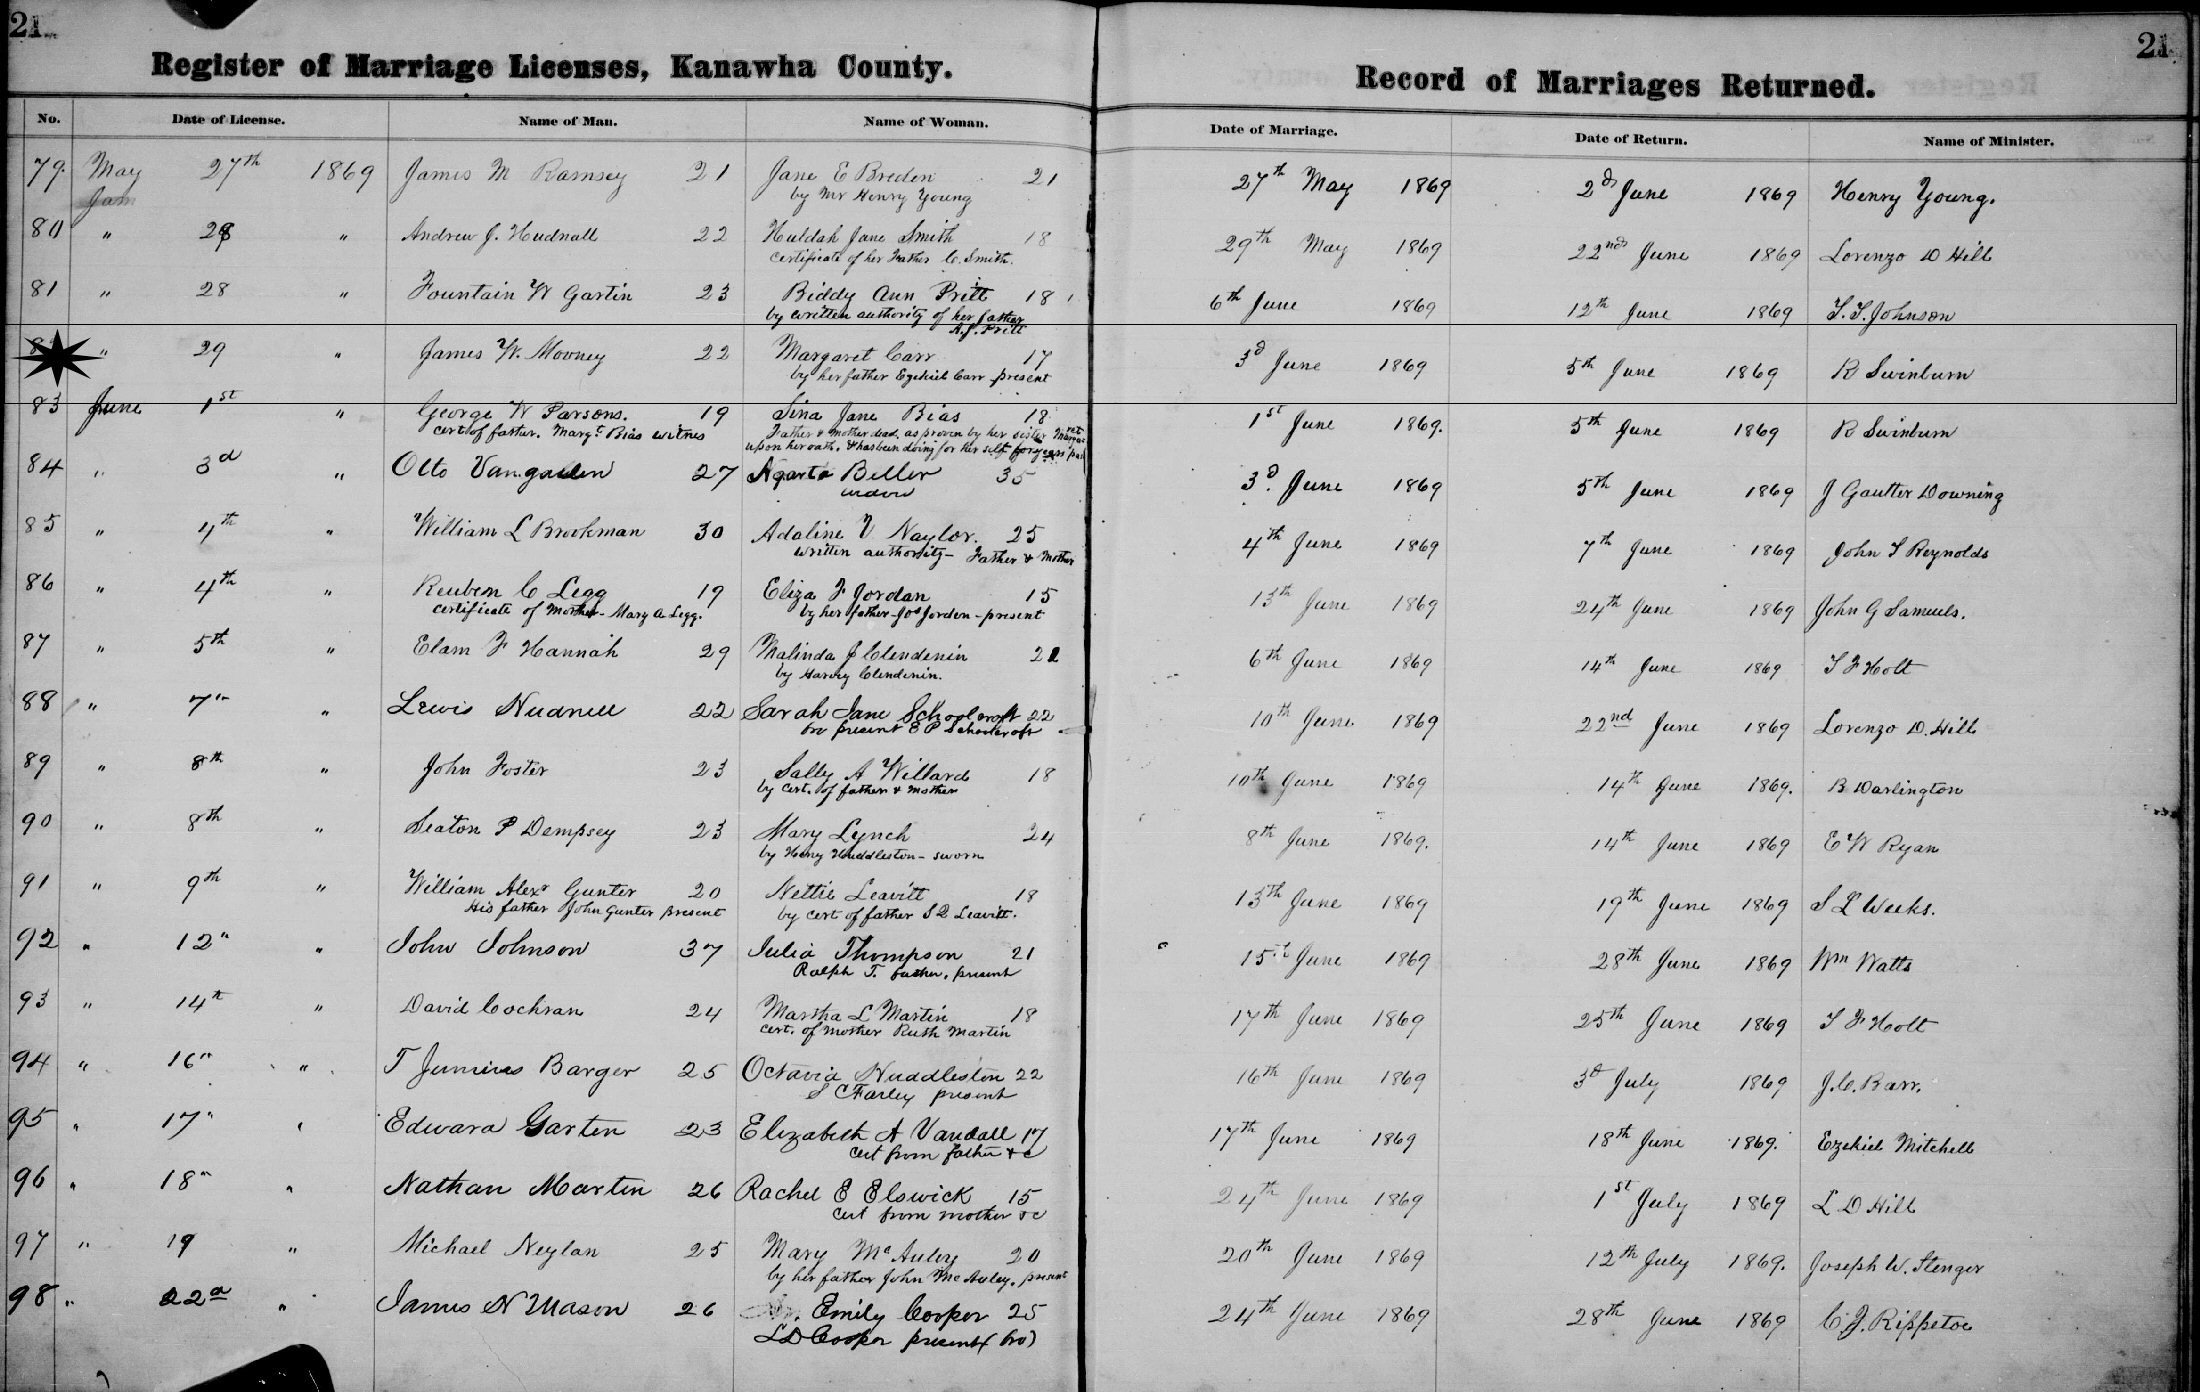 21.
21
Register of Marriage Licenses, Kanawha County.
Record of Marriages Returned.
No. Date of License. Name of Man. Name of Woman. Date of Marriage. Date of Return. Name of Minister.
79. May 27th 1869 James M Ramsey 21 Jane E Breden 21 27th May 1869 2d June 1869 Henry Young.
by Mr Henry Young
80 " 28 " Andrew J. Hudnall 22 Huldah Jane Smith 18 29th May 1869 22nd June 1869 Lorenzo D Hill
certificate of her Father C. Smith.
81 " 28 " Fountain W Gartin 23 Biddy Ann Pritt 18 6th June 1869 12th June 1869 T. F. Johnson
by written authority of her father
A. J. Pritt
" 29 " James W. Mooney 22 Margaret Carr 17 3d June 1869 5th June 1869 R Swinburn
by her father Ezekiel Carr present
83 June 1st " George W Parsons. 19 Sina Jane Bias 18 1st June 1869. 5th June 1869 R Swinburn
cert of father. Margt Bias witnes Father & mother dead, as proven by her sister
upon her oath, & has been doing for her self for years past
84 " 3d " Otto 27 Beller 35 3d. June 1869 5th June 1869 J Gautter Downing
85 " 4th " William L Brookman 30 Adaline V Naylor. 25 4th June 1869 7th June 1869 John S Reynolds
written authority - Father & Mother
86 " 4th " Reuben C Legg 19 Eliza F Jordan 15 13th June 1869 24th June 1869 John G Samuels.
certificate of Mother - Mary A Legg. by her father Jos Jorden - present
87 " 5th " Elam F Hannah 29 Malinda J Clendenin 21 6th June 1869 14th June 1869 T F Holt
by Harvey Clendenin.
88 " 7" " Lewis Hudnell 22 Sarah Jane Schoolcroft 22 10th June 1869 22nd June 1869 Lorenzo D. Hill
bro present E P Schoolcroft
89 " 8th " John Foster 23 Sally A Willard 18 10th June 1869 14th June 1869. B Darlington
by cert. of father & mother
90 " 8th " Seaton P Dempsey 23 Mary Lynch 24 8th June 1869. 14th June 1869 E W Ryan
by Henry Huddleston - sworn
91 " 9th " William Alexr Gunter 20 Nettie Leavitt 18 13th June 1869 19th June 1869 S L Weeks.
His father John Gunter present by cert of father S Q Leavitt.
92 " 12" " John Johnson 37 Julia Thompson 21 15th June 1869 28th June 1869 Wm Watts
Ralph T. father, present
93 " 14th " David Cochran 24 Martha L Martin 18 17th June 1869 25th June 1869 T F Holt
cert. of mother Ruth Martin
94 " 16" " T Junius Barger 25 Octavia Huddleston 22 16th June 1869 3d July 1869 J. C. Barr.
S C Farley present
95 " 17" " Edward Garten 23 Elizabeth A Vandall 17 17th June 1869 18th June 1869. Ezekiel Mitchell
cert from father &c
96 " 18" " Nathan Martin 26 Rachel E Elswick 15 24th June 1869 1st July 1869 L D Hill
cert from mother &c
97 " 19 " Michael Neylan 25 Mary McAuley 20 20th June 1869 12th July 1869. Joseph W. Stenger
by her father John McAuley. present
98 " 22d " James N Mason 26 Emily Cooper 25 24th June 1869 28th June 1869 C J. Rippetoe
L D Cooper present (bro)